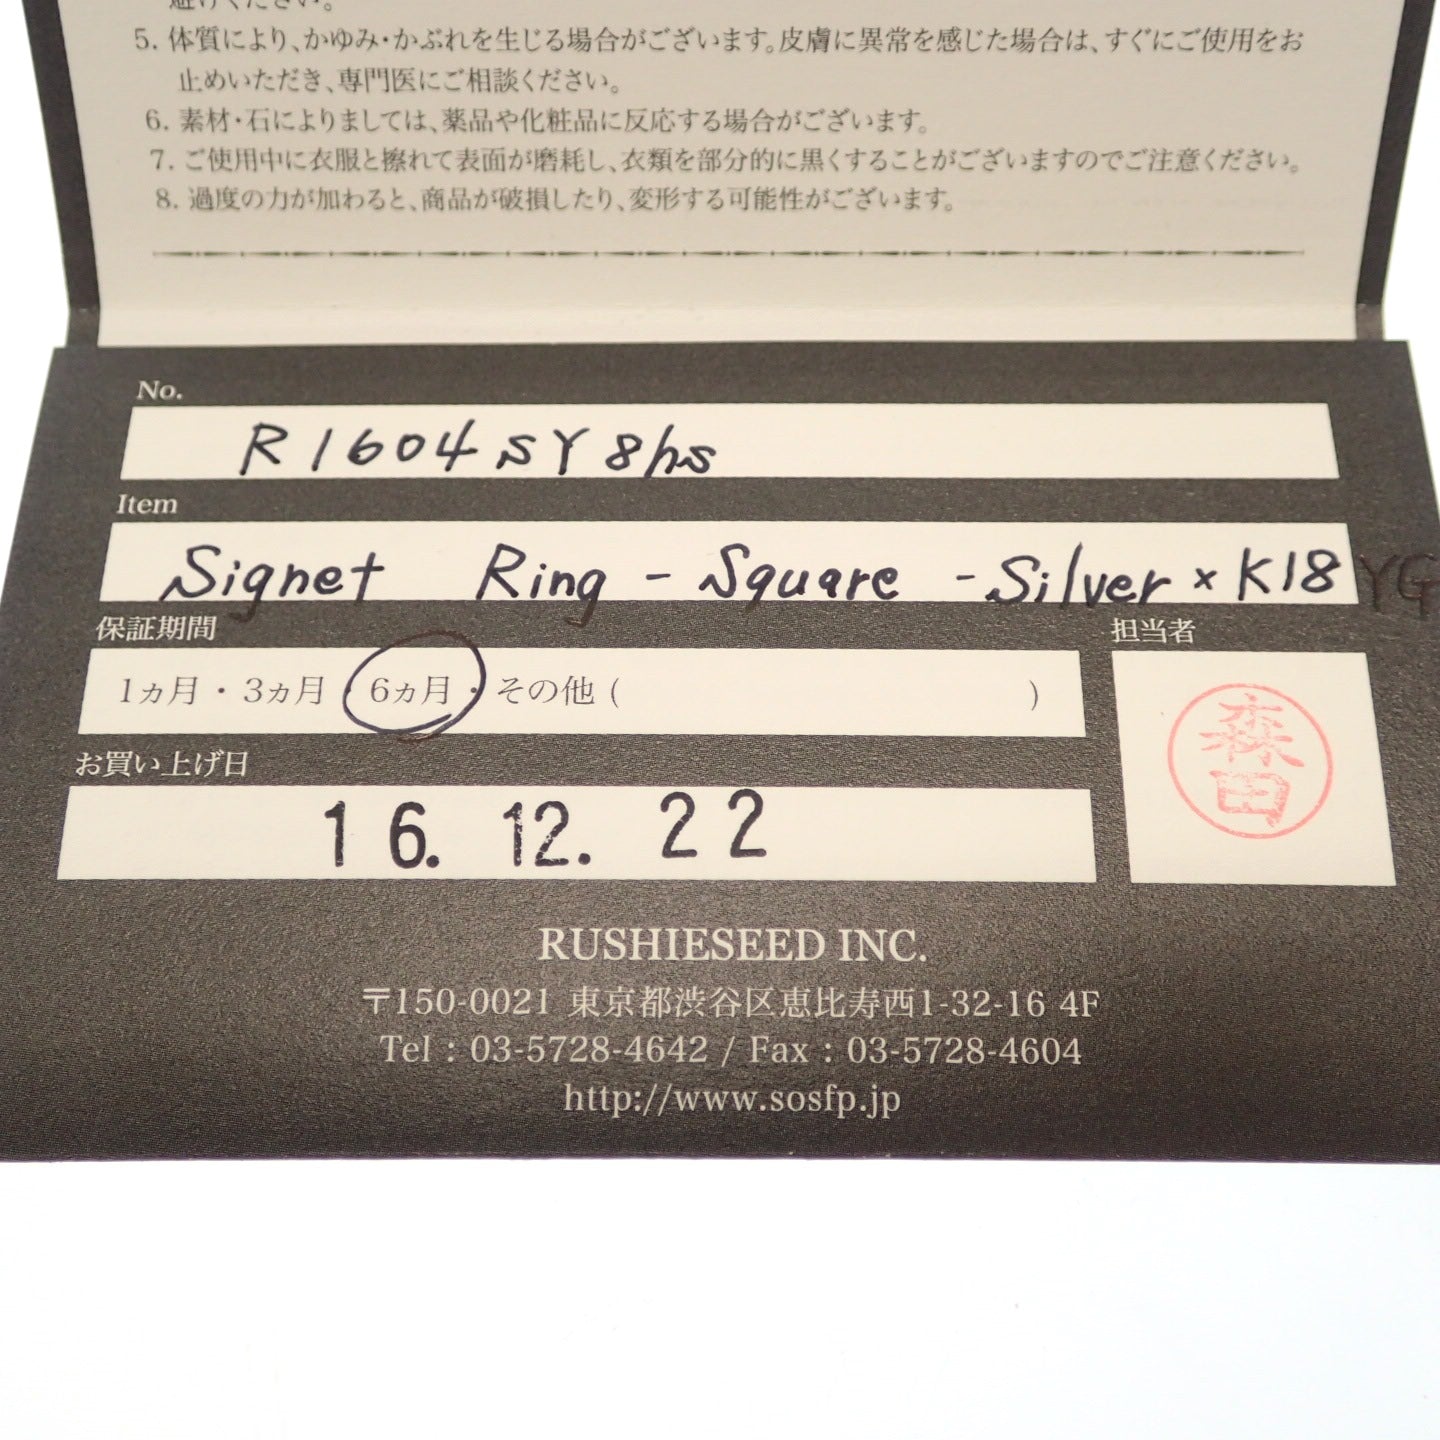 避けください。
5. 体質により、かゆみ・かぶれを生じる場合がございます。皮膚に異常を感じた場合は、すぐにご使用をお
止めいただき、専門医にご相談ください。
6. 素材・石によりましては、薬品や化粧品に反応する場合がございます。
7. ご使用中に衣服と擦れて表面が磨耗し、衣類を部分的に黒くすることがございますのでご注意ください。
8. 過度の力が加わると、商品が破損したり、変形する可能性がございます。
No.
R1604SY8hs
Item
Signet Ring - Square - Silver × K18 YG
保証期間
担当者
1ヵ月・3ヵ月・6ヵ月・その他 ( )
森田
お買い上げ日
16. 12. 22
RUSHIESEED INC.
〒150-0021 東京都渋谷区恵比寿西1-32-16 4F
Tel : 03-5728-4642 / Fax : 03-5728-4604
http://www.sosfp.jp